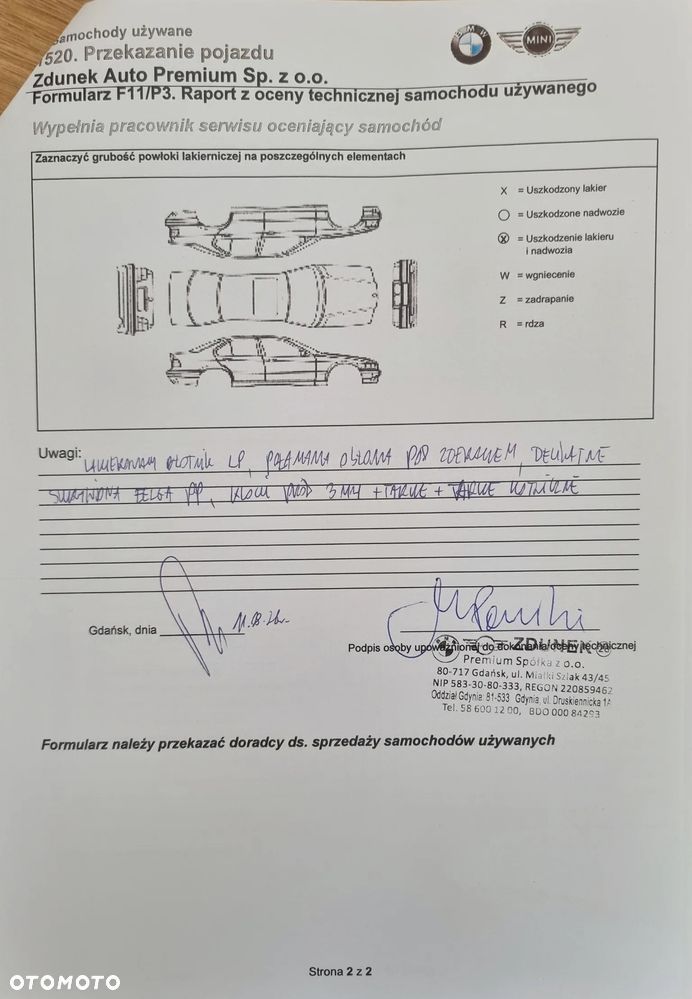 samochody używane
1520. Przekazanie pojazdu
Zdunek Auto Premium Sp. z o.o.
Formularz F11/P3. Raport z oceny technicznej samochodu używanego
BMW
MINI
Wypełnia pracownik serwisu oceniający samochód
Zaznaczyć grubość powłoki lakierniczej na poszczególnych elementach
X = Uszkodzony lakier
= Uszkodzone nadwozie
= Uszkodzenie lakieru
i nadwozia
W = wgniecenie
Z = zadrapanie
R = rdza
Uwagi: LAKIEROWANY BŁOTNIK LP, POŁAMANA OSŁONA POD ZDERZAKIEM, DELIKATNE
FELGA PP, KLOCKI PRZÓD 3 MM + TARCZE + TARCZE
Gdańsk, dnia
Podpis osoby upoważnionej do dokonania oceny technicznej
ZDUNEK
Premium Spółka z o.o.
80-717 Gdańsk, ul. Miałki Szlak 43/45
NIP 583-30-80-333, REGON 220859462
Oddział Gdynia: 81-533 Gdynia, ul. Druskiennicka 1A
Tel. 58 600 12 00, BDO 000 84293
Formularz należy przekazać doradcy ds. sprzedaży samochodów używanych
Strona 2 z 2
OTOMOTO